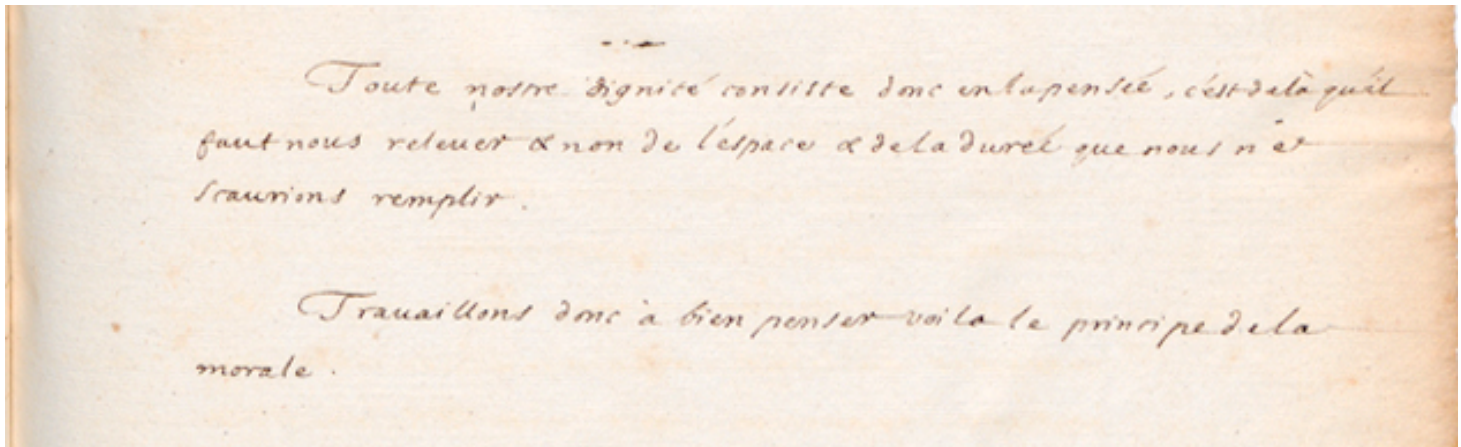 Toute nostre dignité consiste donc en la pensée, c'est de là qu'il
faut nous relever & non de l'espace & de la dureé que nous ne
scaurions remplir.
Travaillons donc à bien penser voila le principe de la
morale.